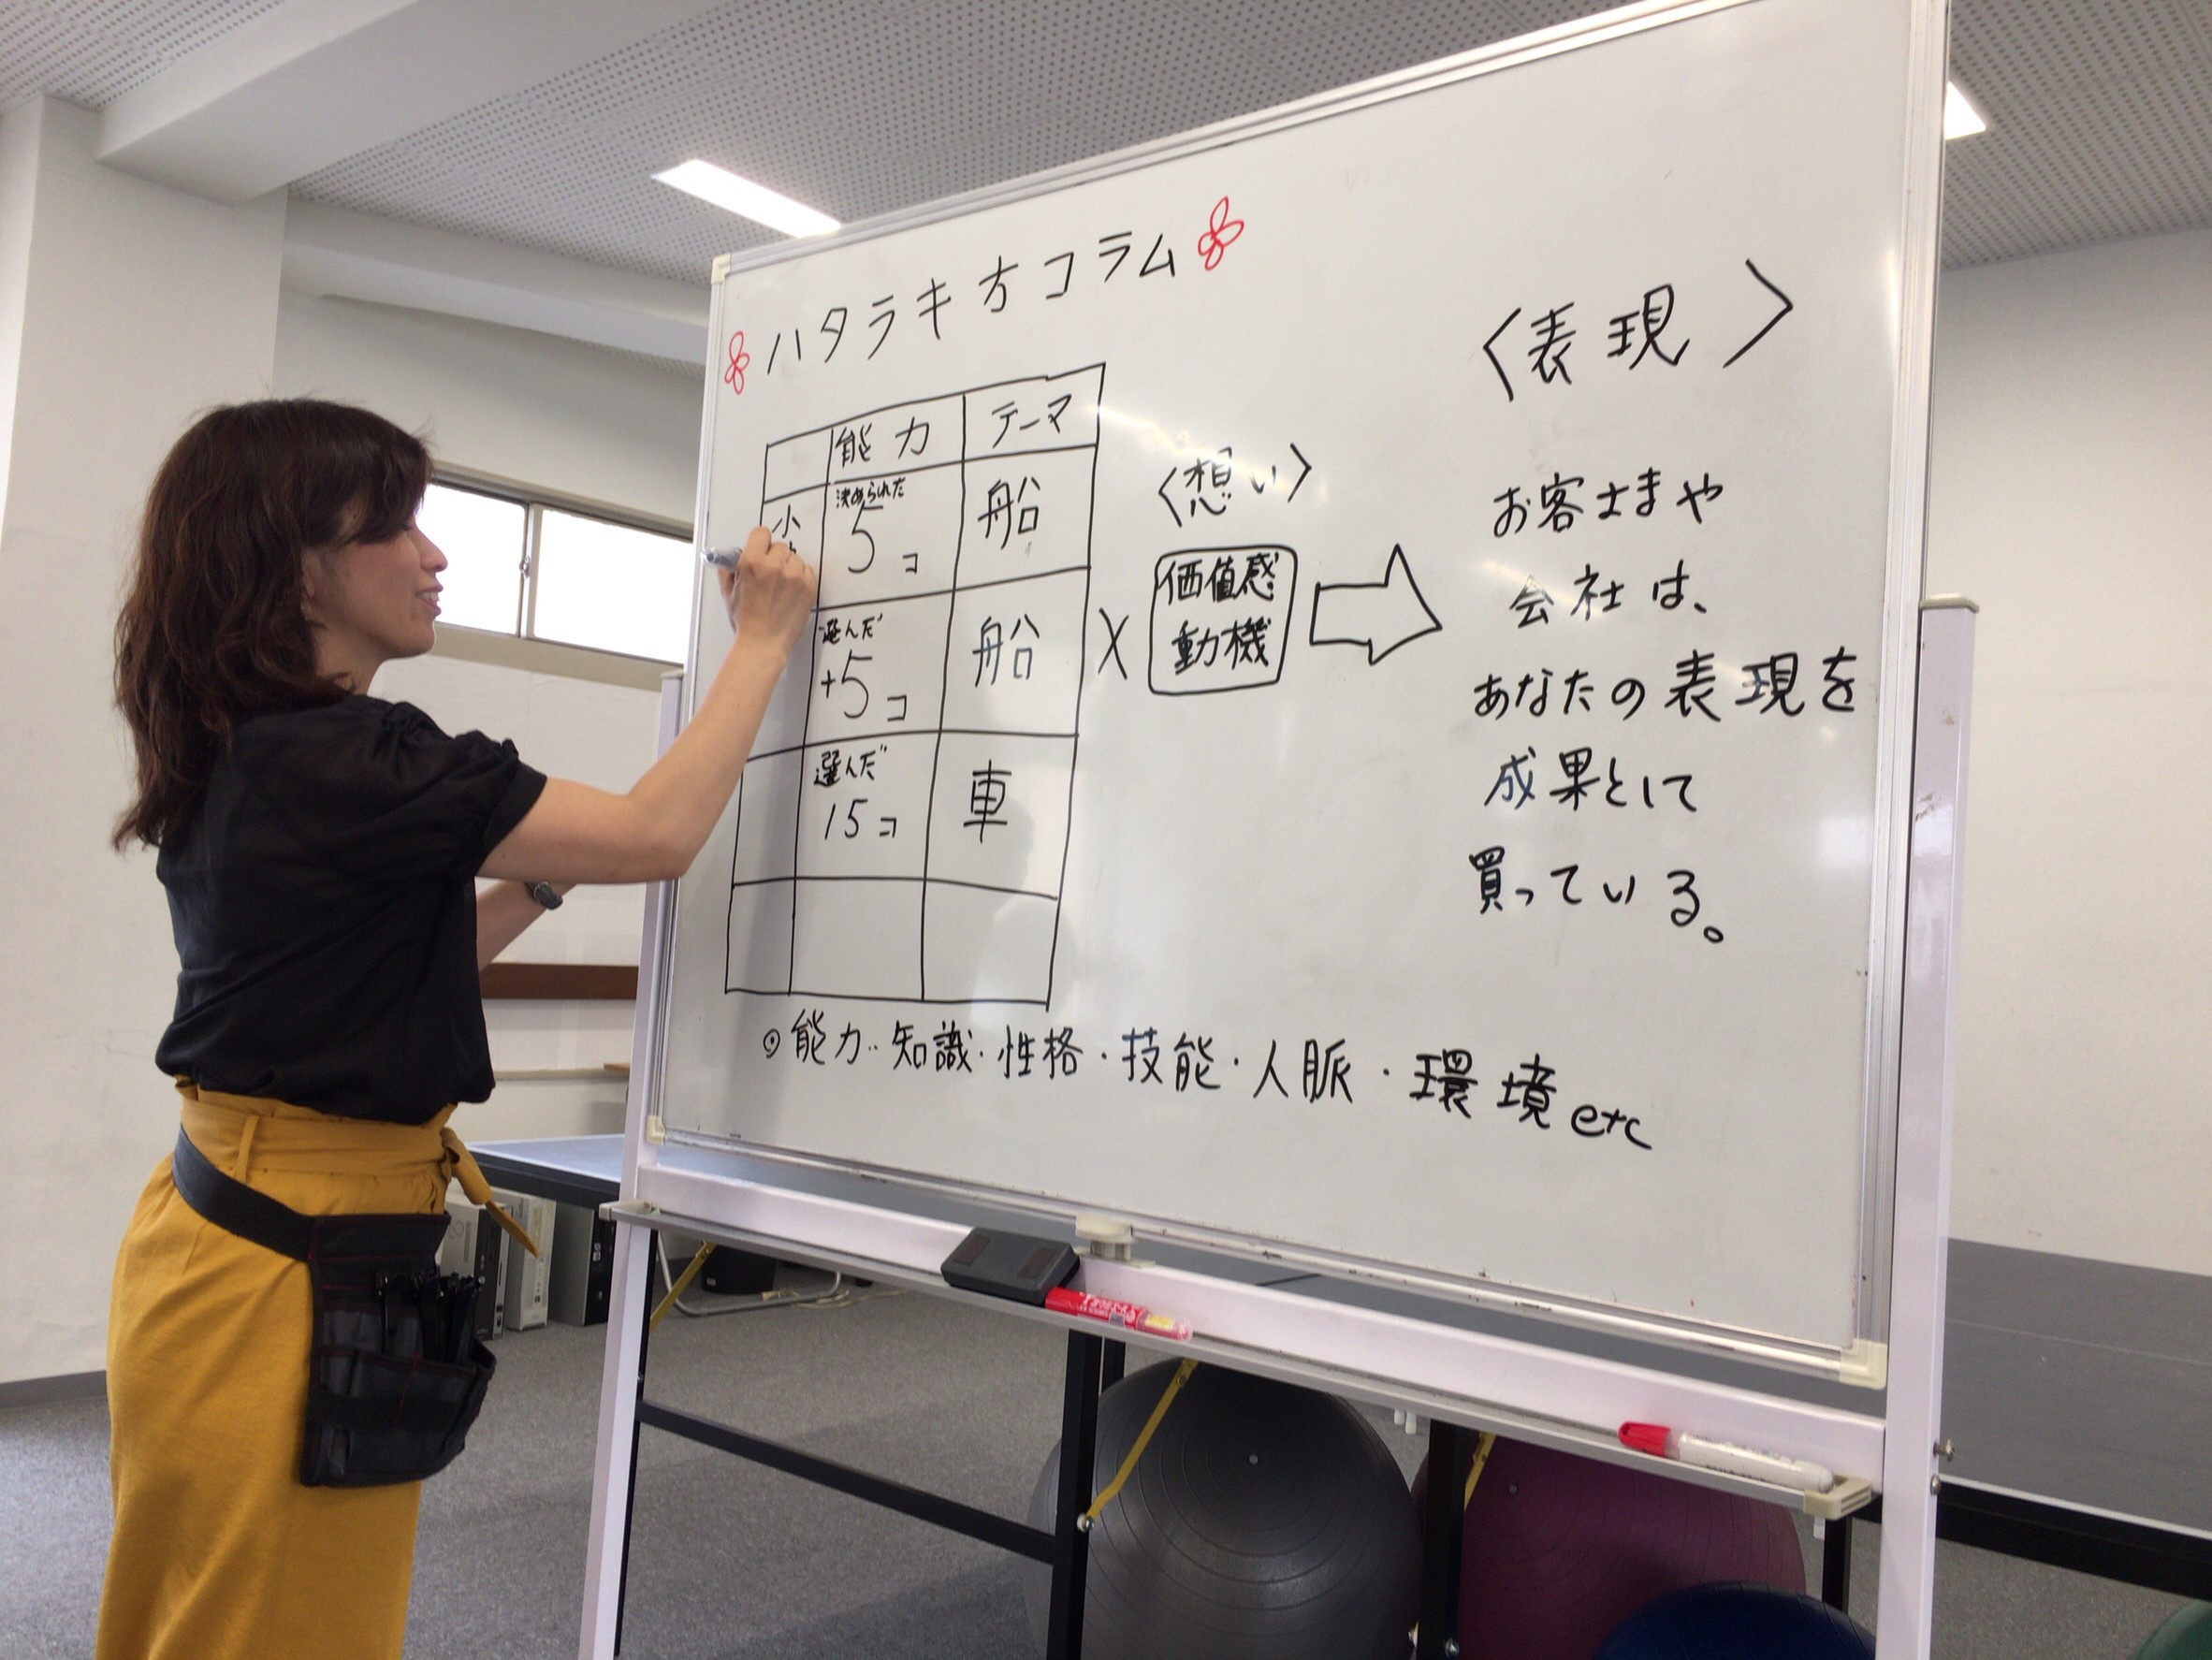 ハタラキ方コラム
能力 テーマ
小 決められた 5コ 船
選んだ +5コ 船
選んだ 15コ 車
×
〈想い〉
価値感
動機
〈表現〉
お客さまや
会社は、
あなたの表現を
成果として
買っている。
◎能力‥知識・性格・技能・人脈・環境etc